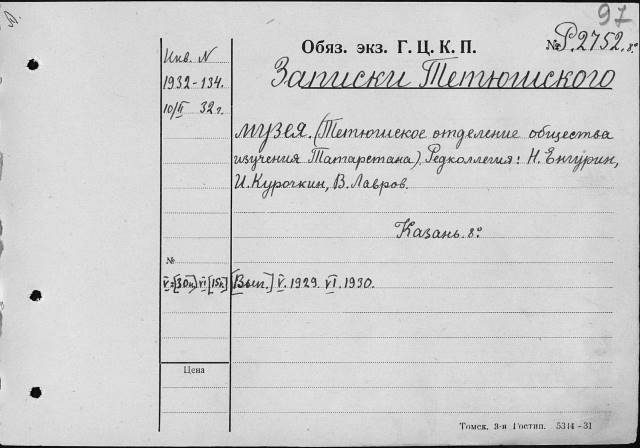 97
Обяз. экз. Г. Ц. К. П.
№ Р.2752. 8°
Инв. N
1932-134.
10/II 32 г.
Записки Тетюшского
музея. (Тетюшское отделение общества
изучения Татарстана). Редколлегия: Н. Енгурин,
И. Курочкин, В. Лавров.
Казань. 8°
№
V=[30к] VI [15к] [Вып.] V. 1929. VI. 1930.
Цена
Томск. 3-я Гостип. 5344-31